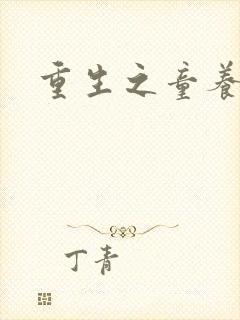 重生之童养
丁青